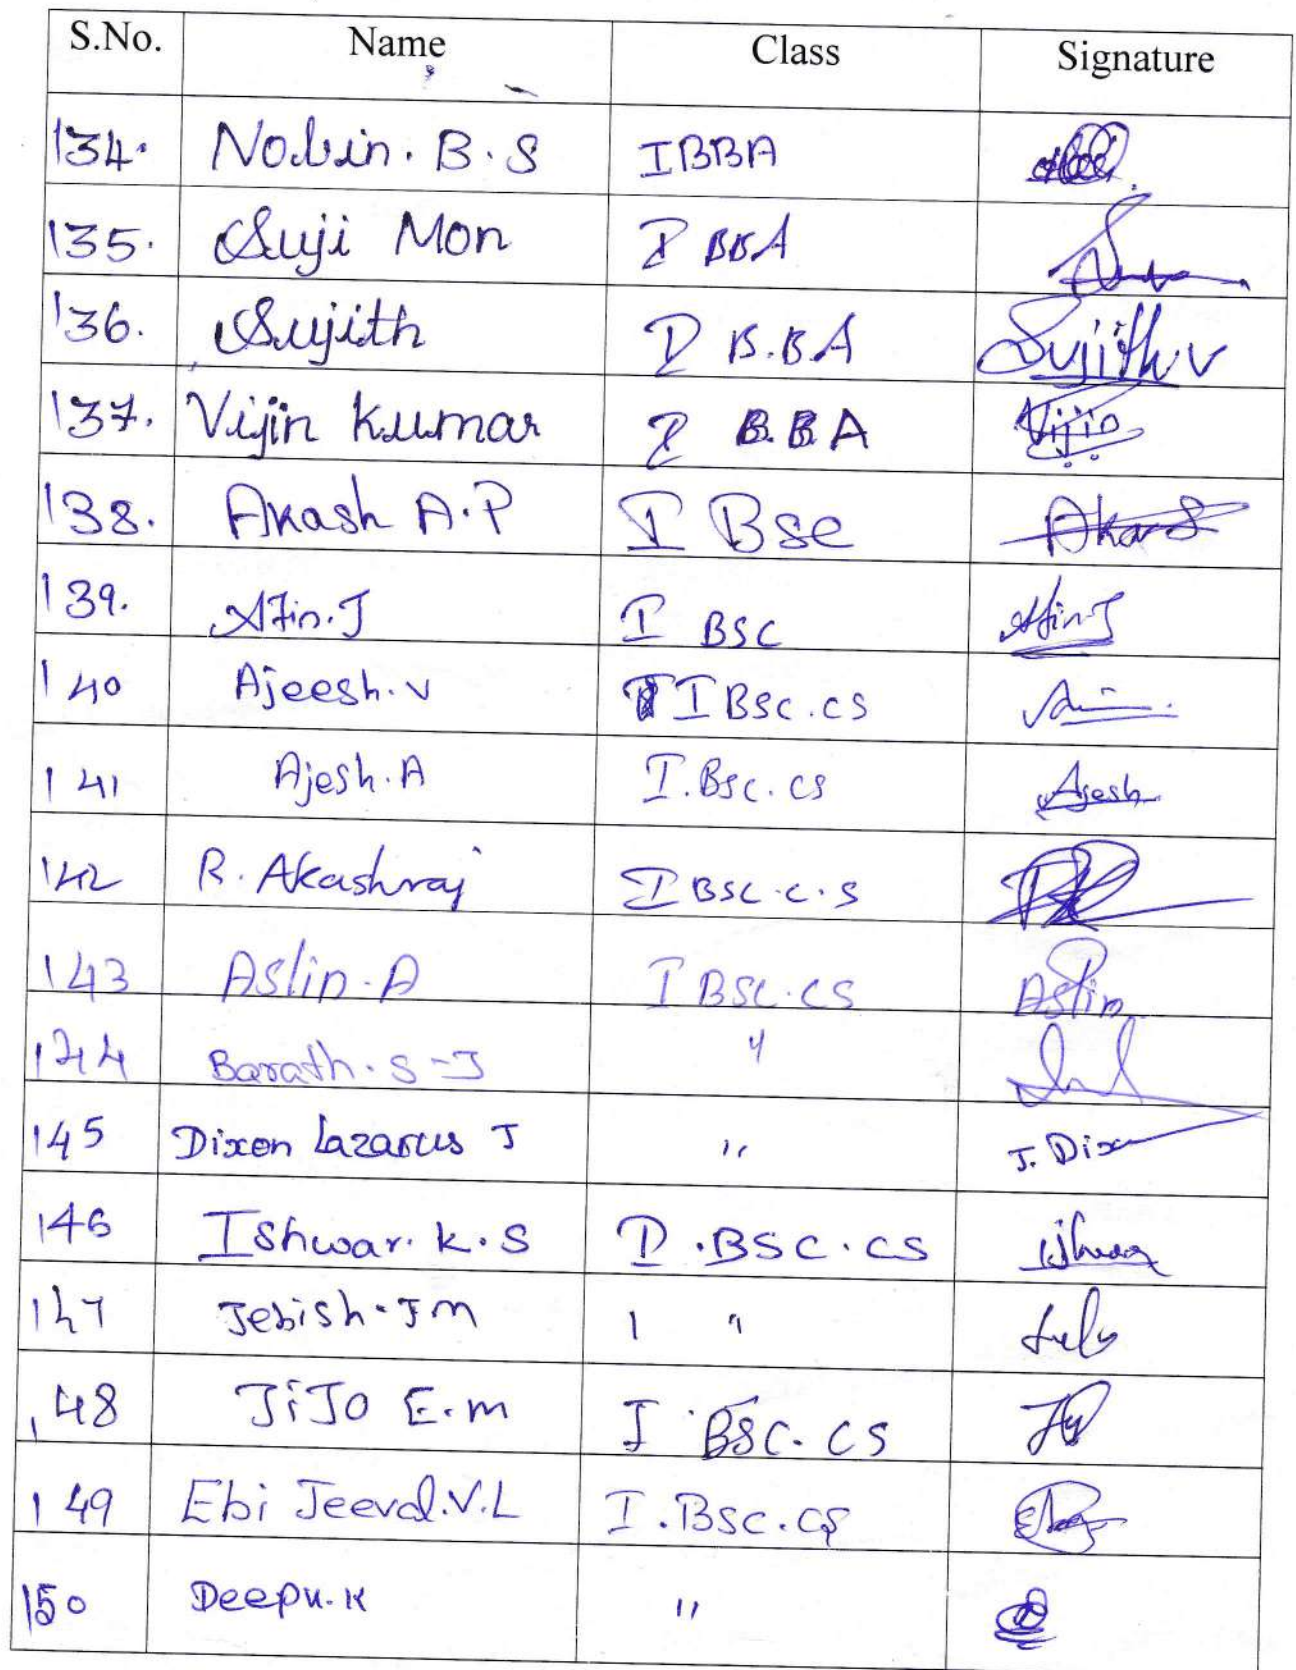 S.No. Name Class Signature
134. Nobin. B. S IBBA
135. Suji Mon I BBA
136. Sujith I B.BA Sujith v
137. Vijin Kumar I B.BA Vijin
138. Akash A.P I Bsc Akash
139. Afin.J I BSC Afin.J
140 Ajeesh.v I BSC.CS
141 Ajesh.A I.Bsc.cs Ajesh
142 R. Akashraj I BSC.C.S
143 Aslin.A I BSC.CS Aslin
144 Barath.S-J "
145 Dixon Lazarus J " J. Dixon
146 Ishwar.K.S I.BSC.CS Ishwar
147 Jebish.Jm I "
148 JiJo E.m I BSC.CS
149 Ebi Jeeval.V.L I.Bsc.cs
150 Deepu.K "